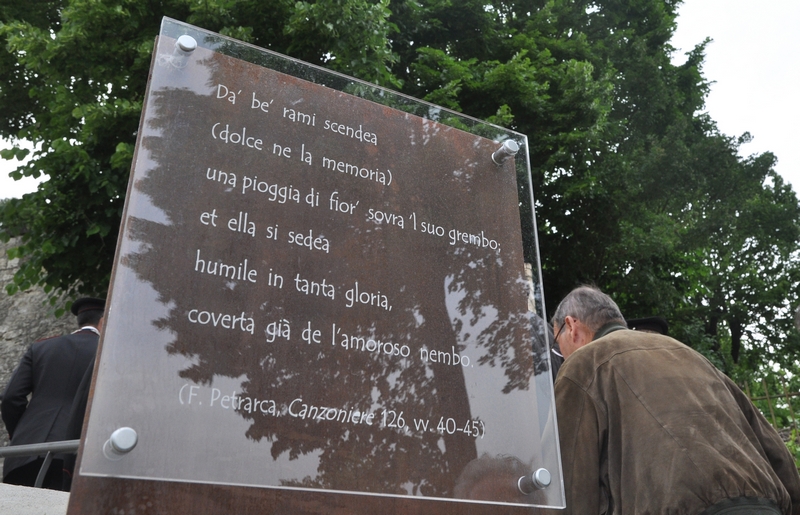 Da' be' rami scendea
(dolce ne la memoria)
una pioggia di fior' sovra 'l suo grembo;
et ella si sedea
humile in tanta gloria,
coverta già de l'amoroso nembo.
(F. Petrarca, Canzoniere 126, vv. 40-45)